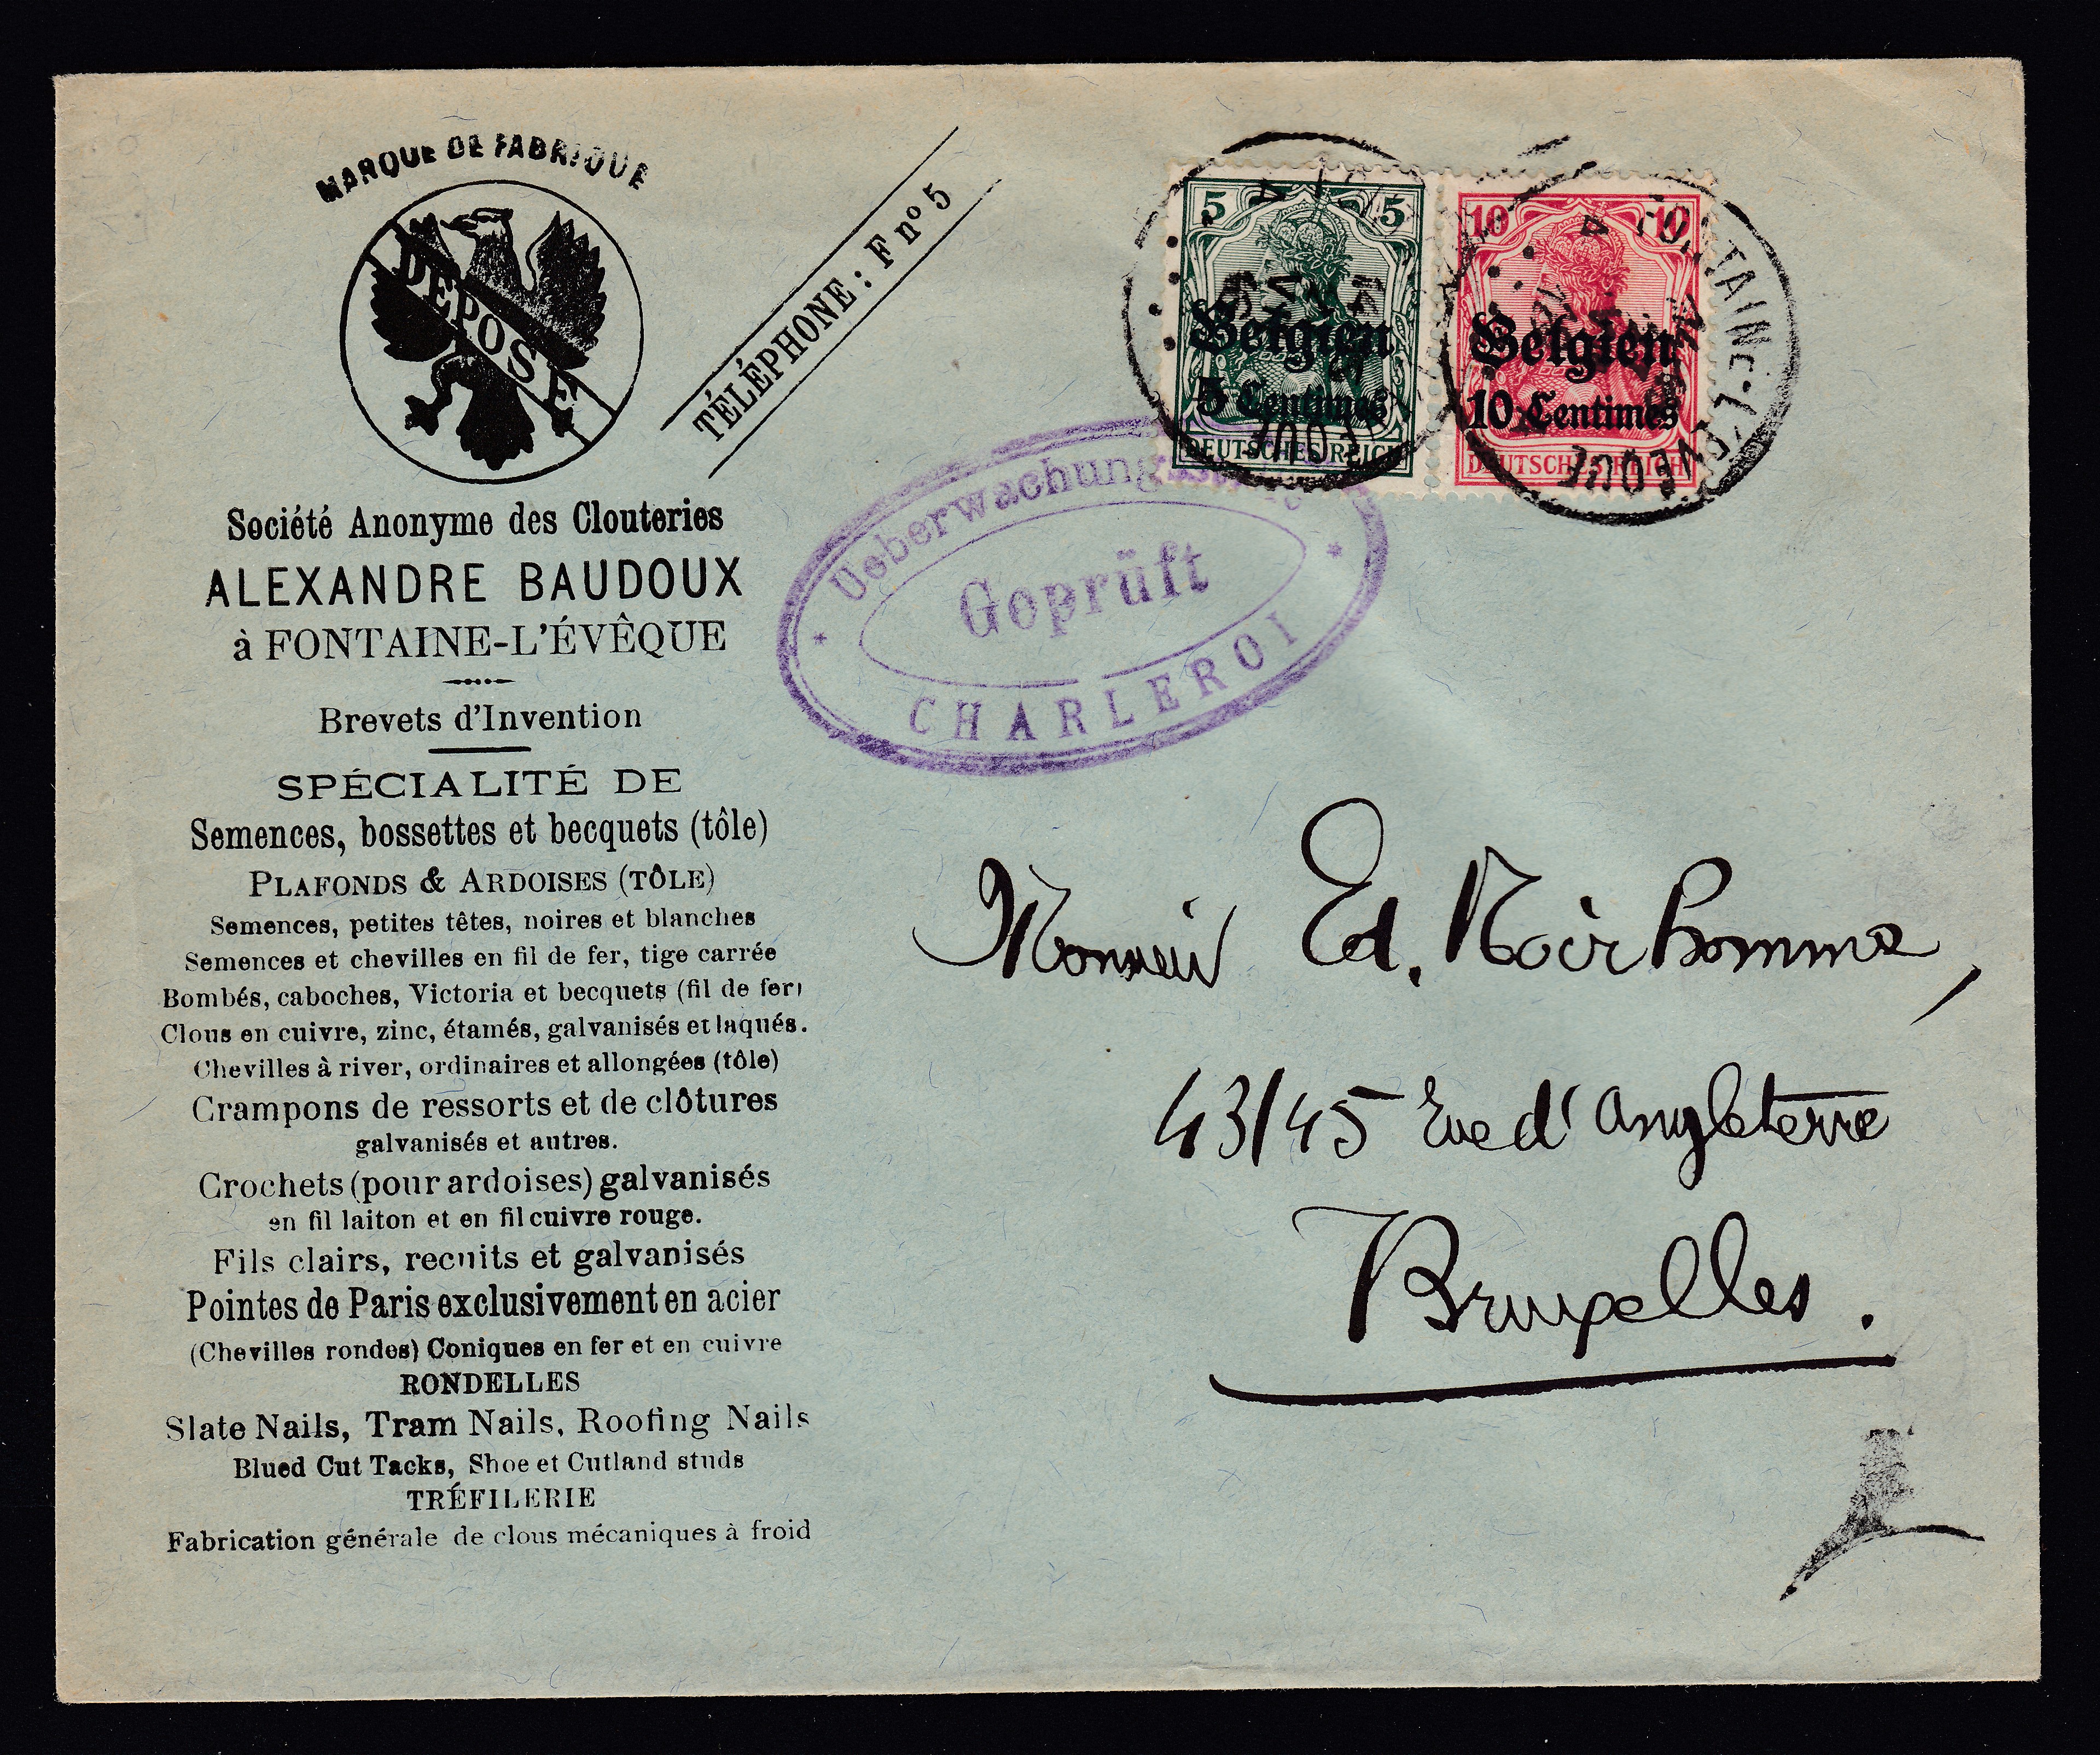 MARQUE DE FABRIQUE
DÉPOSÉ
TÉLÉPHONE : F nº 5
Société Anonyme des Clouteries
ALEXANDRE BAUDOUX
à FONTAINE-L'ÉVÊQUE
Brevets d'Invention
SPÉCIALITÉ DE
Semences, bossettes et becquets (tôle)
PLAFONDS & ARDOISES (TÔLE)
Semences, petites têtes, noires et blanches
Semences et chevilles en fil de fer, tige carrée
Bombés, caboches, Victoria et becquets (fil de fer)
Clous en cuivre, zinc, étamés, galvanisés et laqués.
Chevilles à river, ordinaires et allongées (tôle)
Crampons de ressorts et de clôtures
galvanisés et autres.
Crochets (pour ardoises) galvanisés
en fil laiton et en fil cuivre rouge.
Fils clairs, recuits et galvanisés
Pointes de Paris exclusivement en acier
(Chevilles rondes) Coniques en fer et en cuivre
RONDELLES
Slate Nails, Tram Nails, Roofing Nails
Blued Cut Tacks, Shoe et Cutland studs
TRÉFILERIE
Fabrication générale de clous mécaniques à froid
5 5
Belgien
5 Centimes
DEUTSCHES REICH
10 10
Belgien
10 Centimes
DEUTSCHES REICH
FONTAINE-L'EVEQUE
Geprüft
CHARLEROI
Monsieur Ed. Noirhomme,
43/45 Rue d'Angleterre
Bruxelles.